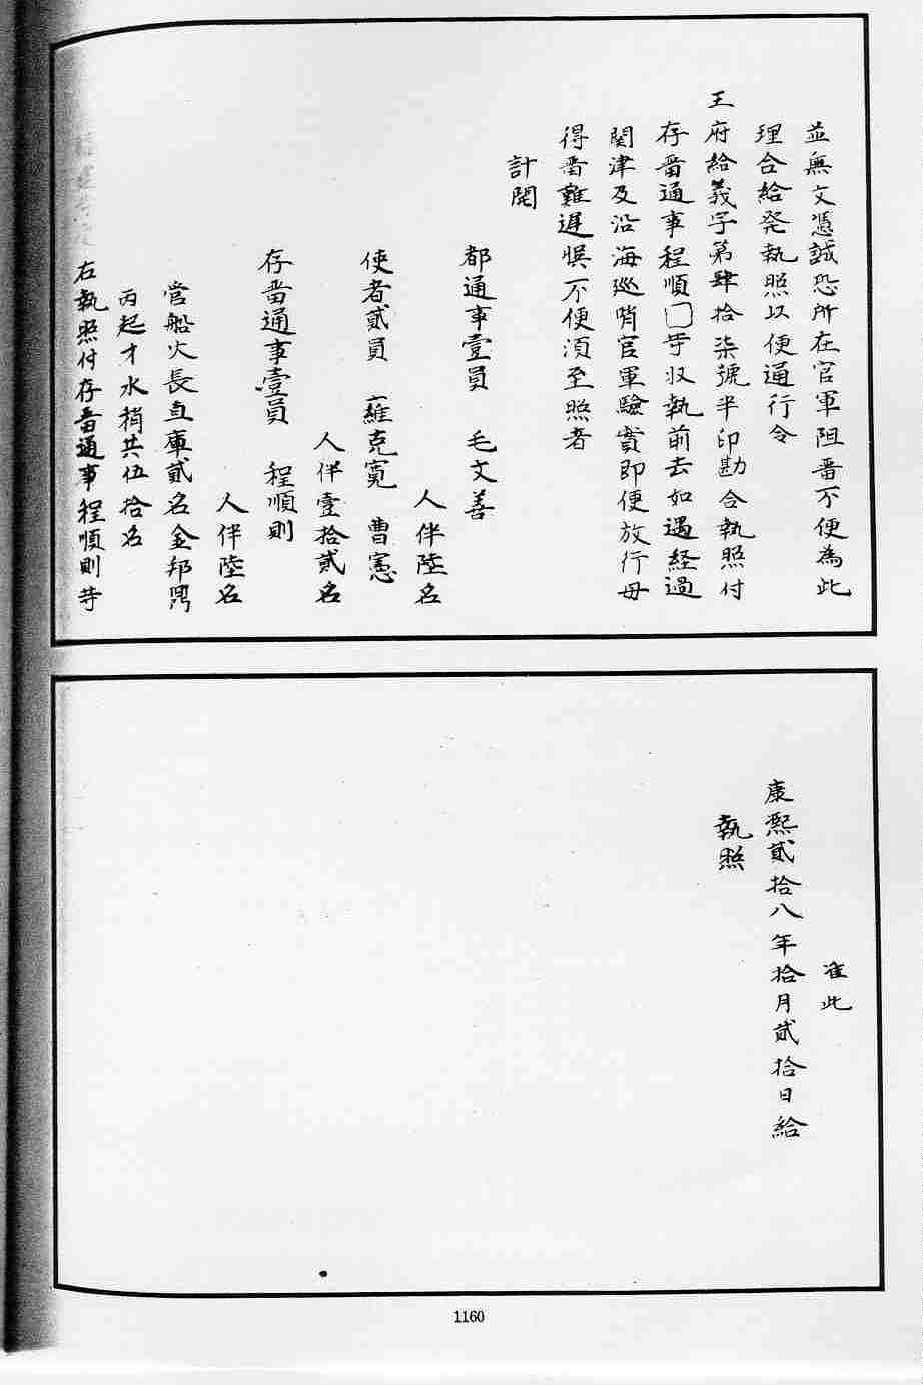 並無文憑誠恐所在官軍阻畱不便為此
理合給発執照以便通行令
王府給義字第肆拾柒號半印勘合執照付
存畱通事程順□等収執前去如遇経過
関津及沿海巡哨官軍驗實即便放行毋
得畱難遲悞不便湏至照者
計開
都通事壹員 毛文善
人伴陸名
使者貳員 羅克寛 曹憲
人伴壹拾貳名
存畱通事壹員 程順則
人伴陸名
管船火長直庫貳名金邦
水梢共伍拾名
右執照付存畱通事程順則等
准此
康熙貳拾八年拾月貳拾日給
執照
1160